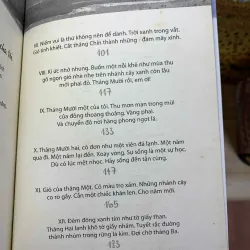 III. Niềm vui là thứ không nên để dành. Trời xanh trong vắt.
Gió tinh khất. Cất tháng Chín thành những - đám mây xinh.
101
VIII. Kì dị nhớ nhung. Buồn một nỗi khẽ như mùa thu
gõ ngọn gió nhẹ nhẹ trên nhành cây xanh còn lâu
mới phai đó. Tháng Mười rồi, em ơi!
117
IX. Tháng Mười một của tôi. Thu mơn man trong mùi
của đồng thoang thoảng. Vàng và phai.
Và chuyển đồi nơi hàng phong ngọt lá.
133
X. Tháng Mười hai, cô đơn như một viên đá lạnh. Một năm
qua đi. Một năm lại đến. Xoay vòng. Sự sống là một sự học.
Dù có lúc mệt nhọc. Hãy sống đến tận cùng.
147
XI. Gió của tháng Một. Cỏ màu tro xám. Những nhành cây
co ro gầy. Cần một chiếc khăn len. Cho năm mới.
165
XII. Đêm đông xanh tím như tờ giấy than.
Tháng Hai lanh khô vỡ như thủy tinh. Tuyết rặc đường
thành nhúm trong rừng lá kim. Đợi chờ tháng Ba.
183